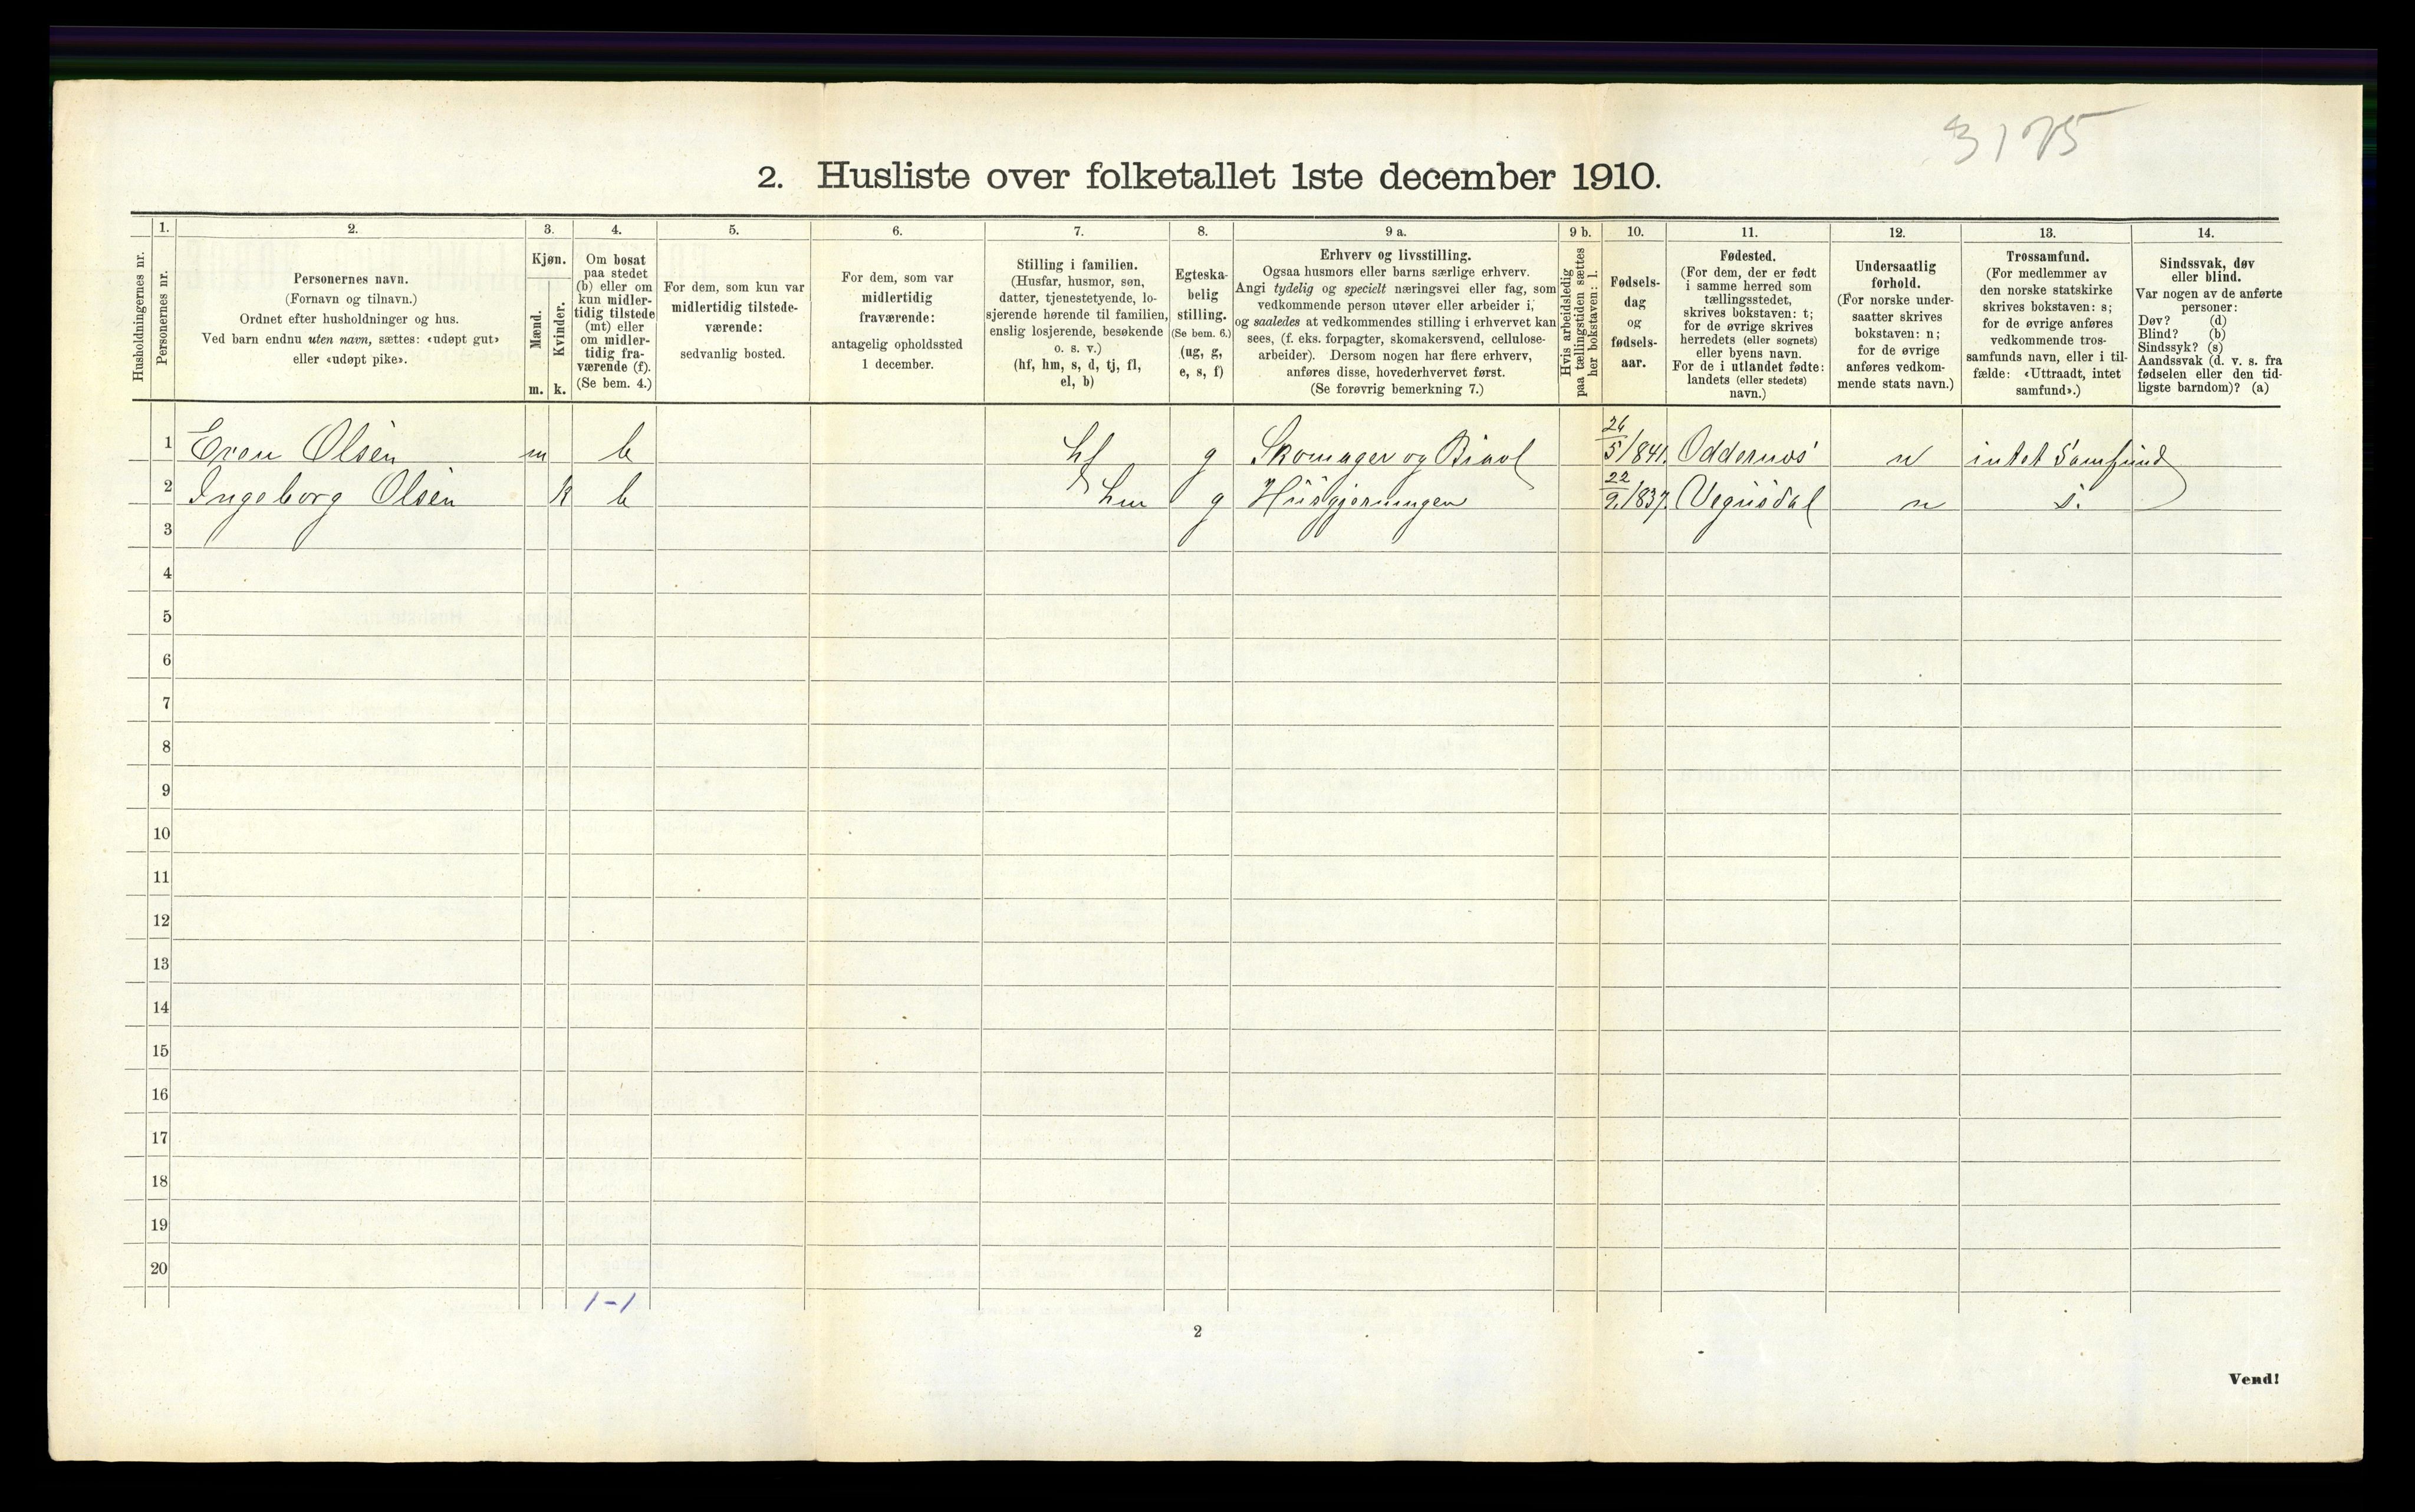 3175
2. Husliste over folketallet 1ste december 1910.
Husholdningernes nr.
1.
Personernes nr.
2.
Personernes navn.
(Fornavn og tilnavn.)
Ordnet efter husholdninger og hus.
Ved barn endnu uten navn, sættes: «udøpt gut»
eller «udøpt pike».
3.
Kjøn.
Mænd.
Kvinder.
m. k.
4.
Om bosat
paa stedet
(b) eller om
kun midler-
tidig tilstede
(mt) eller
om midler-
tidig fra-
værende (f).
(Se bem. 4.)
5.
For dem, som kun var
midlertidig tilstede-
værende:
sedvanlig bosted.
6.
For dem, som var
midlertidig
fraværende:
antagelig opholdssted
1 december.
7.
Stilling i familien.
(Husfar, husmor, søn,
datter, tjenestetyende, lo-
sjerende hørende til familien,
enslig losjerende, besøkende
o. s. v.)
(hf, hm, s, d, tj, fl,
el, b)
8.
Egteska-
belig
stilling.
(Se bem. 6.)
(ug, g,
e, s, f)
9 a.
Erhverv og livsstilling.
Ogsaa husmors eller barns særlige erhverv.
Angi tydelig og specielt næringsvei eller fag, som
vedkommende person utøver eller arbeider i,
og saaledes at vedkommendes stilling i erhvervet kan
sees, (f. eks. forpagter, skomakersvend, cellulose-
arbeider). Dersom nogen har flere erhverv,
anføres disse, hovederhvervet først.
(Se forøvrig bemerkning 7.)
9 b.
Hvis arbeidsledig
paa tællingstiden sættes
her bokstaven: l.
10.
Fødsels-
dag
og
fødsels-
aar.
11.
Fødested.
(For dem, der er født
i samme herred som
tællingsstedet,
skrives bokstaven: t;
for de øvrige skrives
herredets (eller sognets)
eller byens navn.
For de i utlandet fødte:
landets (eller stedets)
navn.)
12.
Undersaatlig
forhold.
(For norske under-
saatter skrives
bokstaven: n;
for de øvrige
anføres vedkom-
mende stats navn.)
13.
Trossamfund.
(For medlemmer av
den norske statskirke
skrives bokstaven: s;
for de øvrige anføres
vedkommende tros-
samfunds navn, eller i til-
fælde: «Uttraadt, intet
samfund».)
14.
Sindssvak, døv
eller blind.
Var nogen av de anførte
personer:
Døv? (d)
Blind? (b)
Sindssyk? (s)
Aandssvak (d. v. s. fra
fødselen eller den tid-
ligste barndom)? (a)
1 Even Olsen m b hf g Skomager og Biavl 26/5 1841. Oddernes n intet Samfund
2 Ingeborg Olsen k b hm g Husgjerningen 22/9. 1837. Vegusdal n s.
3
4
5
6
7
8
9
10
11
12
13
14
15
16
17
18
19
20
1-1
2
Vend!